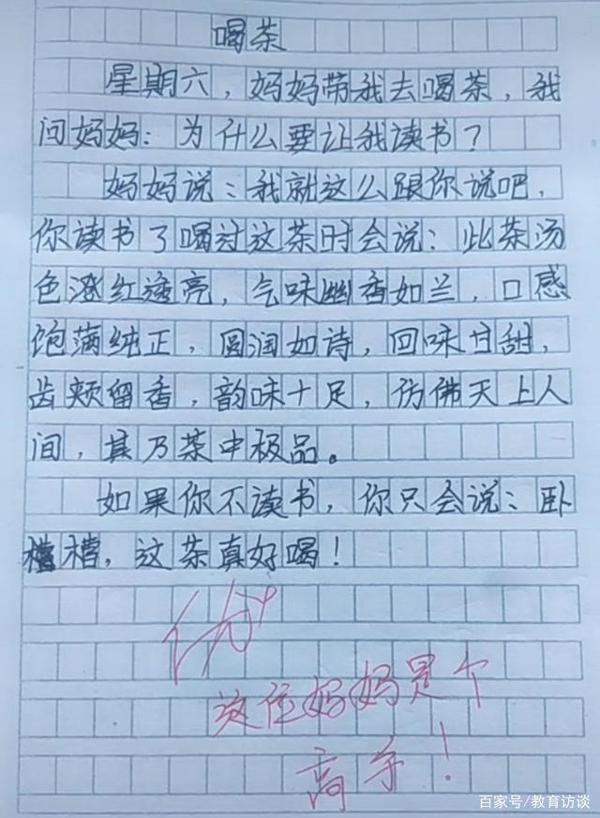 喝茶
星期六，妈妈带我去喝茶，我
问妈妈：为什么要让我读书？
妈妈说：我就这么跟你说吧，
你读书了喝过这茶时会说：此茶汤
色澄红透亮，气味幽香如兰，口感
饱满纯正，圆润如诗，回味甘甜，
齿颊留香，韵味十足，仿佛天上人
间，其乃茶中极品。
如果你不读书，你只会说：卧
槽槽，这茶真好喝！
优
这位妈妈是个
高手！
百家号/教育访谈